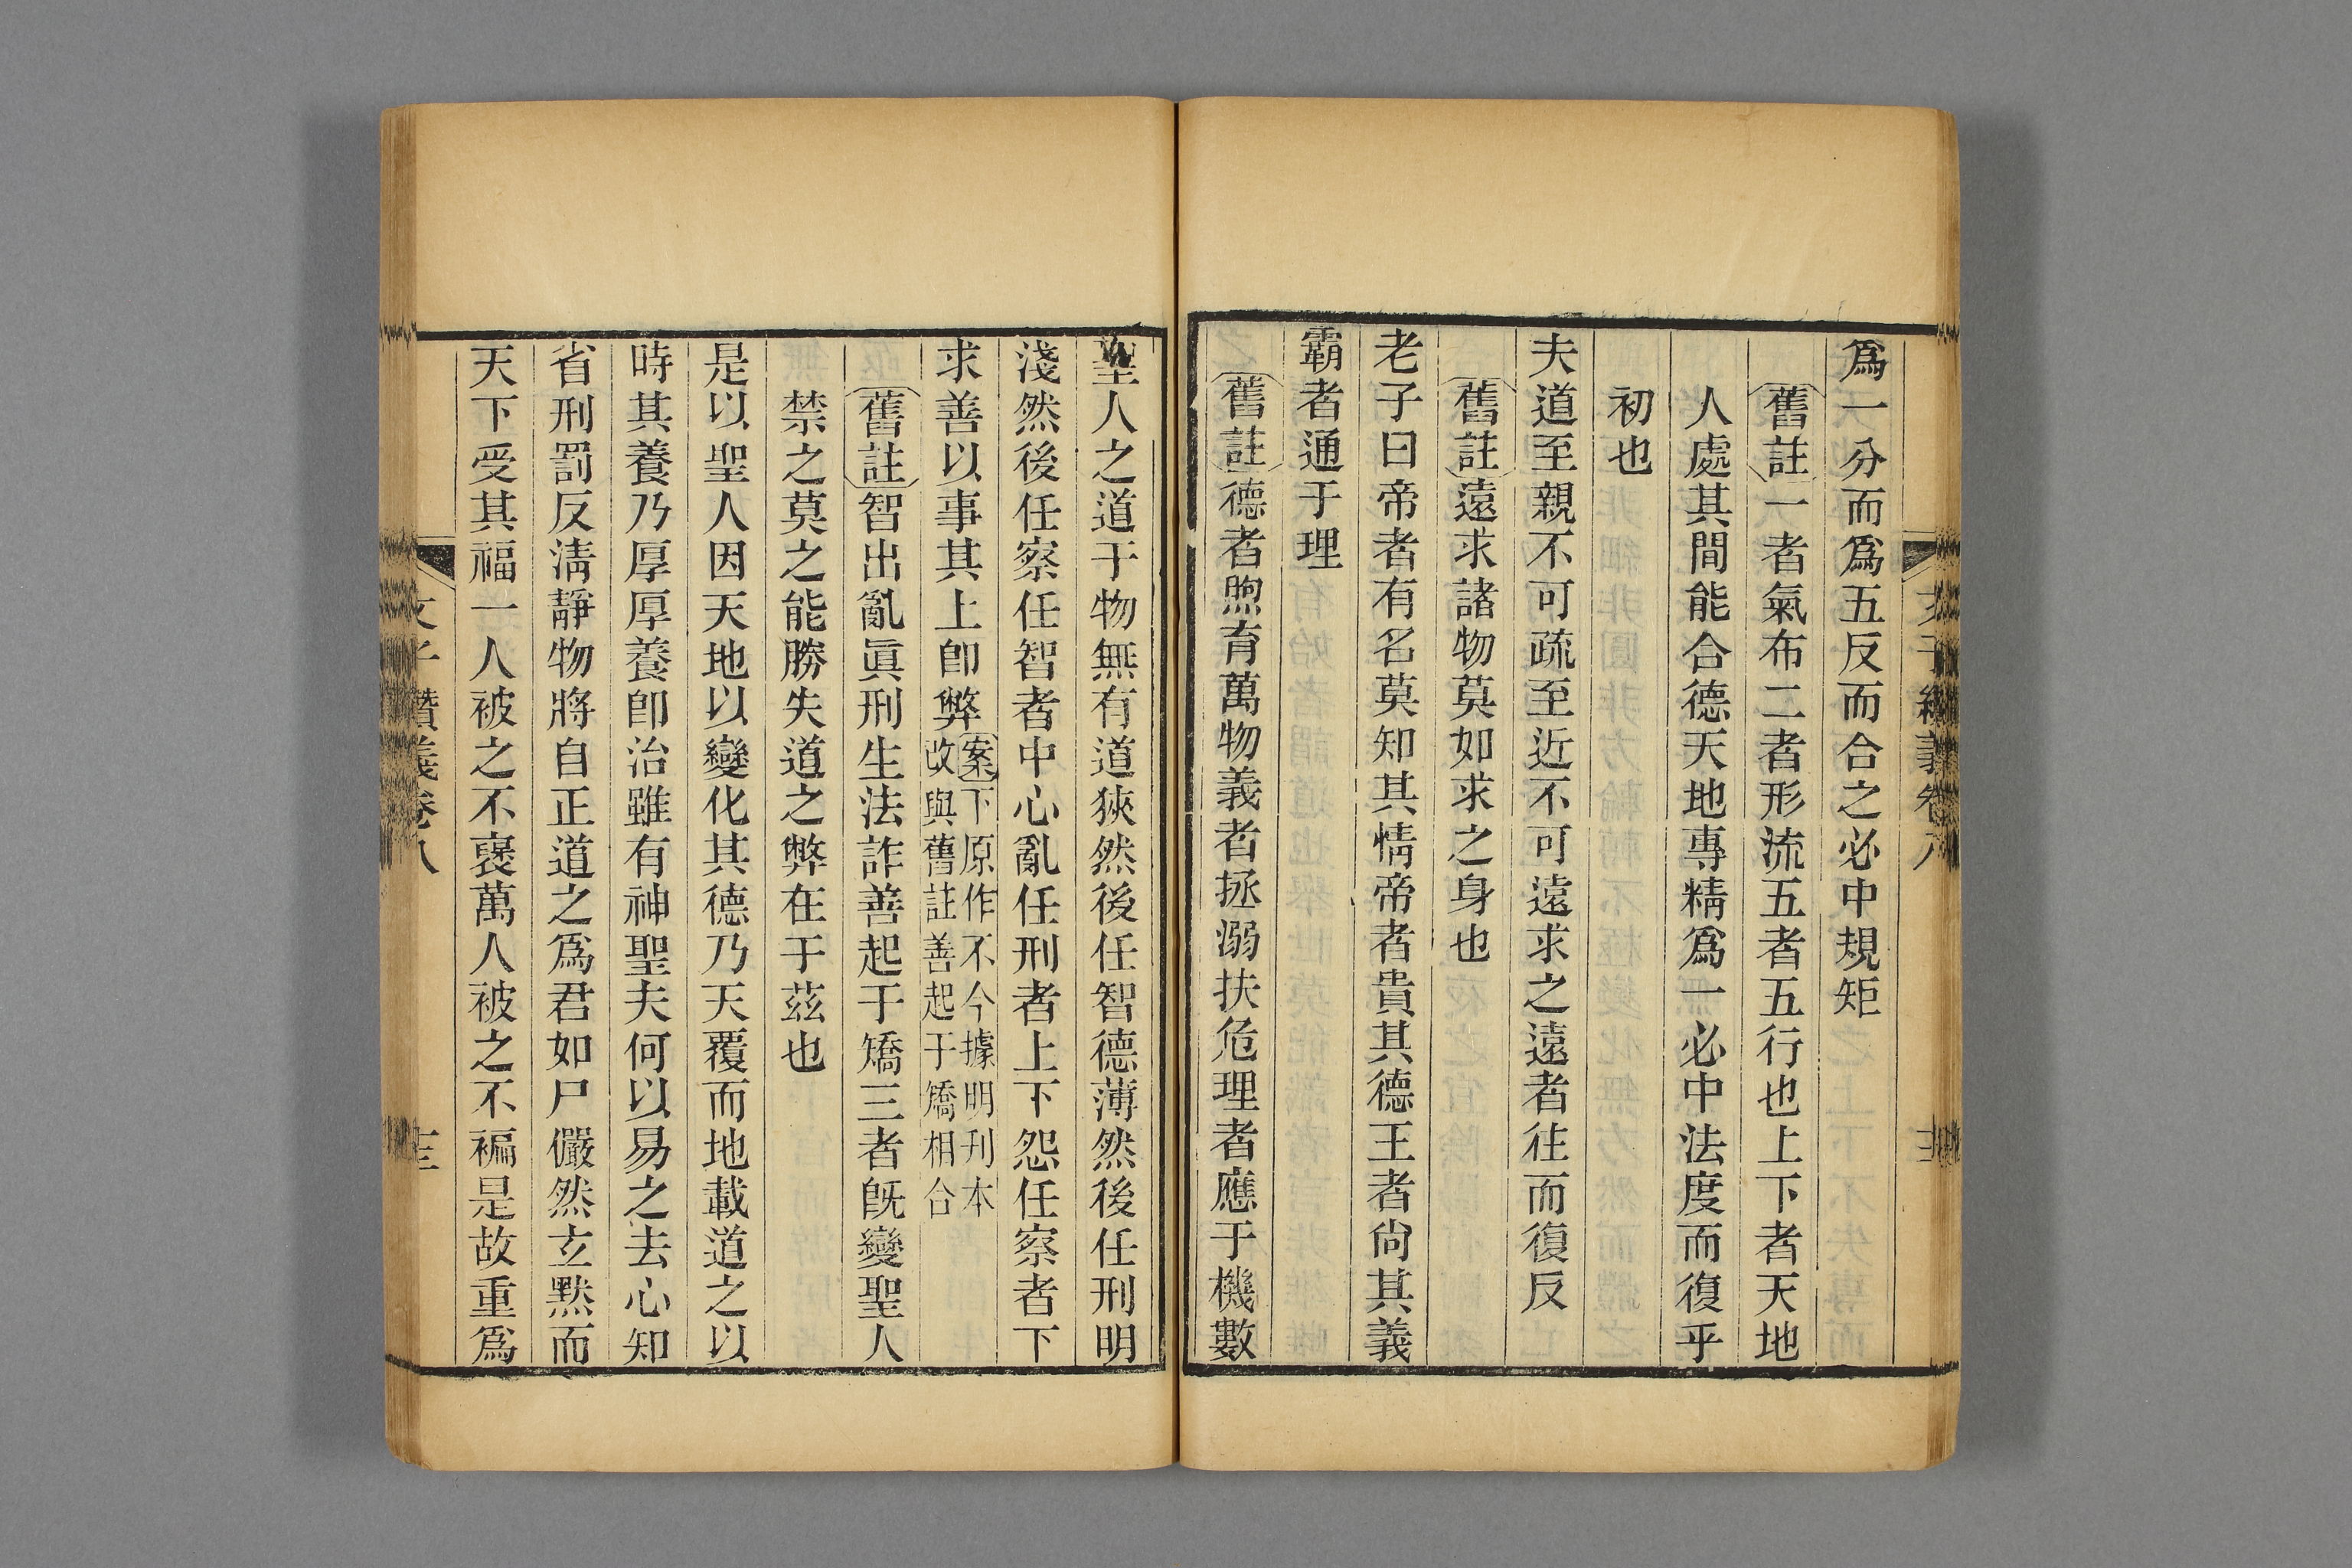 文子纘義卷八
爲一分而爲五反而合之必中規矩
舊註一者氣布二者形流五者五行也上下者天地
人處其間能合德天地專精爲一必中法度而復乎
初也
夫道至親不可疏至近不可遠求之遠者往而復反
舊註遠求諸物莫如求之身也
老子曰帝者有名莫知其情帝者貴其德王者尙其義
霸者通于理
舊註德者煦育萬物義者拯溺扶危理者應于機數
聖人之道于物無有道狹然後任智德薄然後任刑明
淺然後任察任智者中心亂任刑者上下怨任察者下
求善以事其上卽弊
案下原作不今據明刊本
改與舊註善起于矯相合
舊註智出亂眞刑生法詐善起于矯三者旣變聖人
禁之莫之能勝失道之弊在于茲也
是以聖人因天地以變化其德乃天覆而地載道之以
時其養乃厚厚養卽治雖有神聖夫何以易之去心知
省刑罰反淸靜物將自正道之爲君如尸儼然玄默而
天下受其福一人被之不裦萬人被之不褊是故重爲
文子纘義卷八
十三